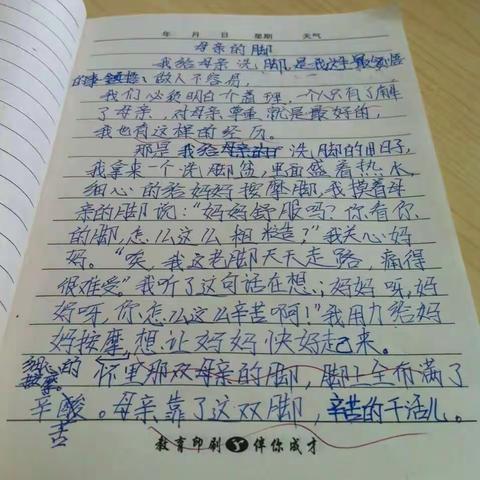 年 月 日 星期 天气
母亲的脚
我给母亲洗脚,是我
做人不容易,
我们必须明白个道理,一个人只有了解
了母亲,对母亲尊重就是最好的,
我也有这样的经历。
那是我给母亲的洗脚的日子,
我拿来一个洗脚盆,里面盛着热水,
细心的给妈妈按摩脚,我摸着母
亲的脚说:“妈妈舒服吗?你看你
的脚,怎么这么粗糙?”我关心妈
妈。“唉,我这老脚天天走路,痛得
很难受。”我听了这句话在想:妈妈呀,妈
妈呀,你怎么这么辛苦啊!”我用力给妈
妈按摩,想让妈妈快好起来。
细心的
按摩。
怀里那双母亲的脚,脚上全布满了
辛酸。母亲靠了这双脚,辛苦的干活儿。
苦
教育印刷 伴你成才